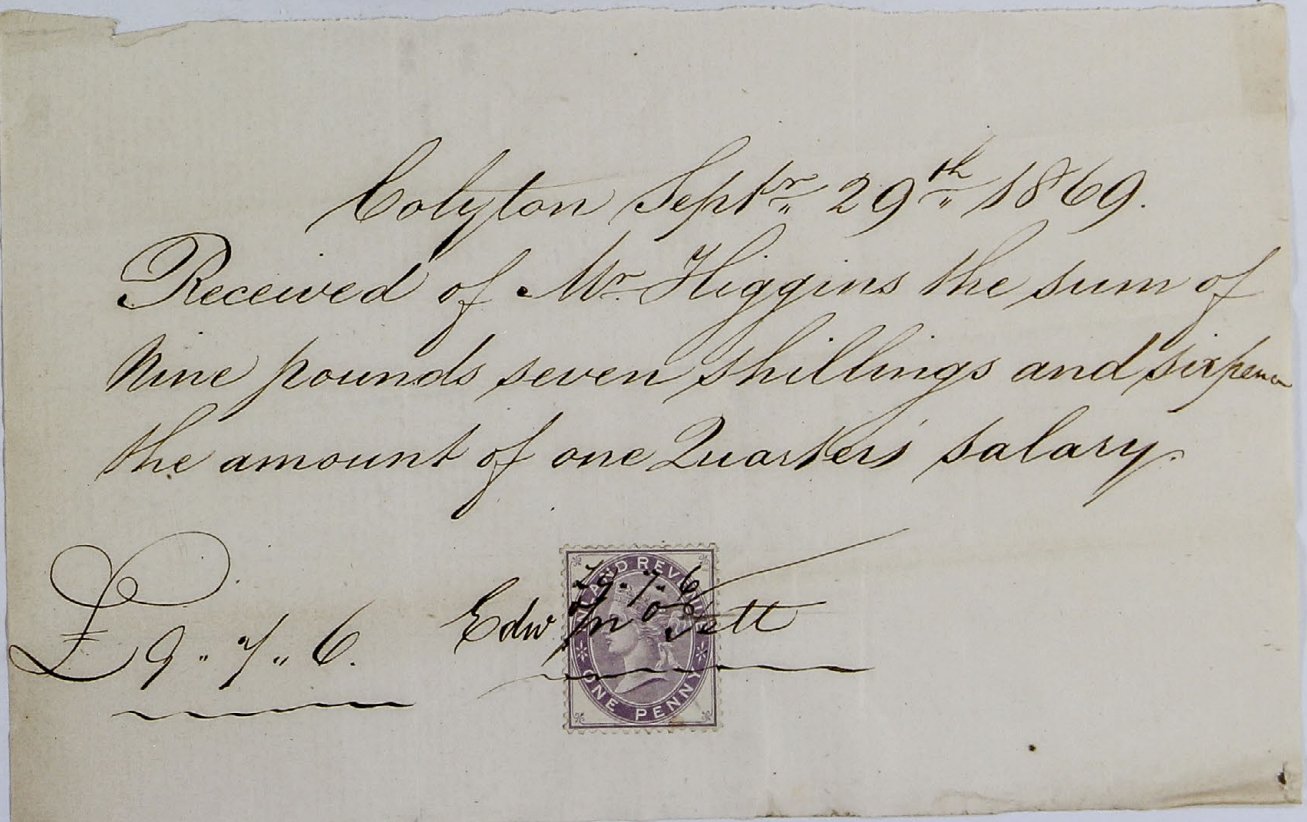 Colyton Septr 29th 1869.
Received of Mr Higgins the sum of
Nine pounds seven shillings and sixpence
the amount of one Quarters' salary.
£9. 7. 6.
Edw
INLAND REVENUE
ONE PENNY